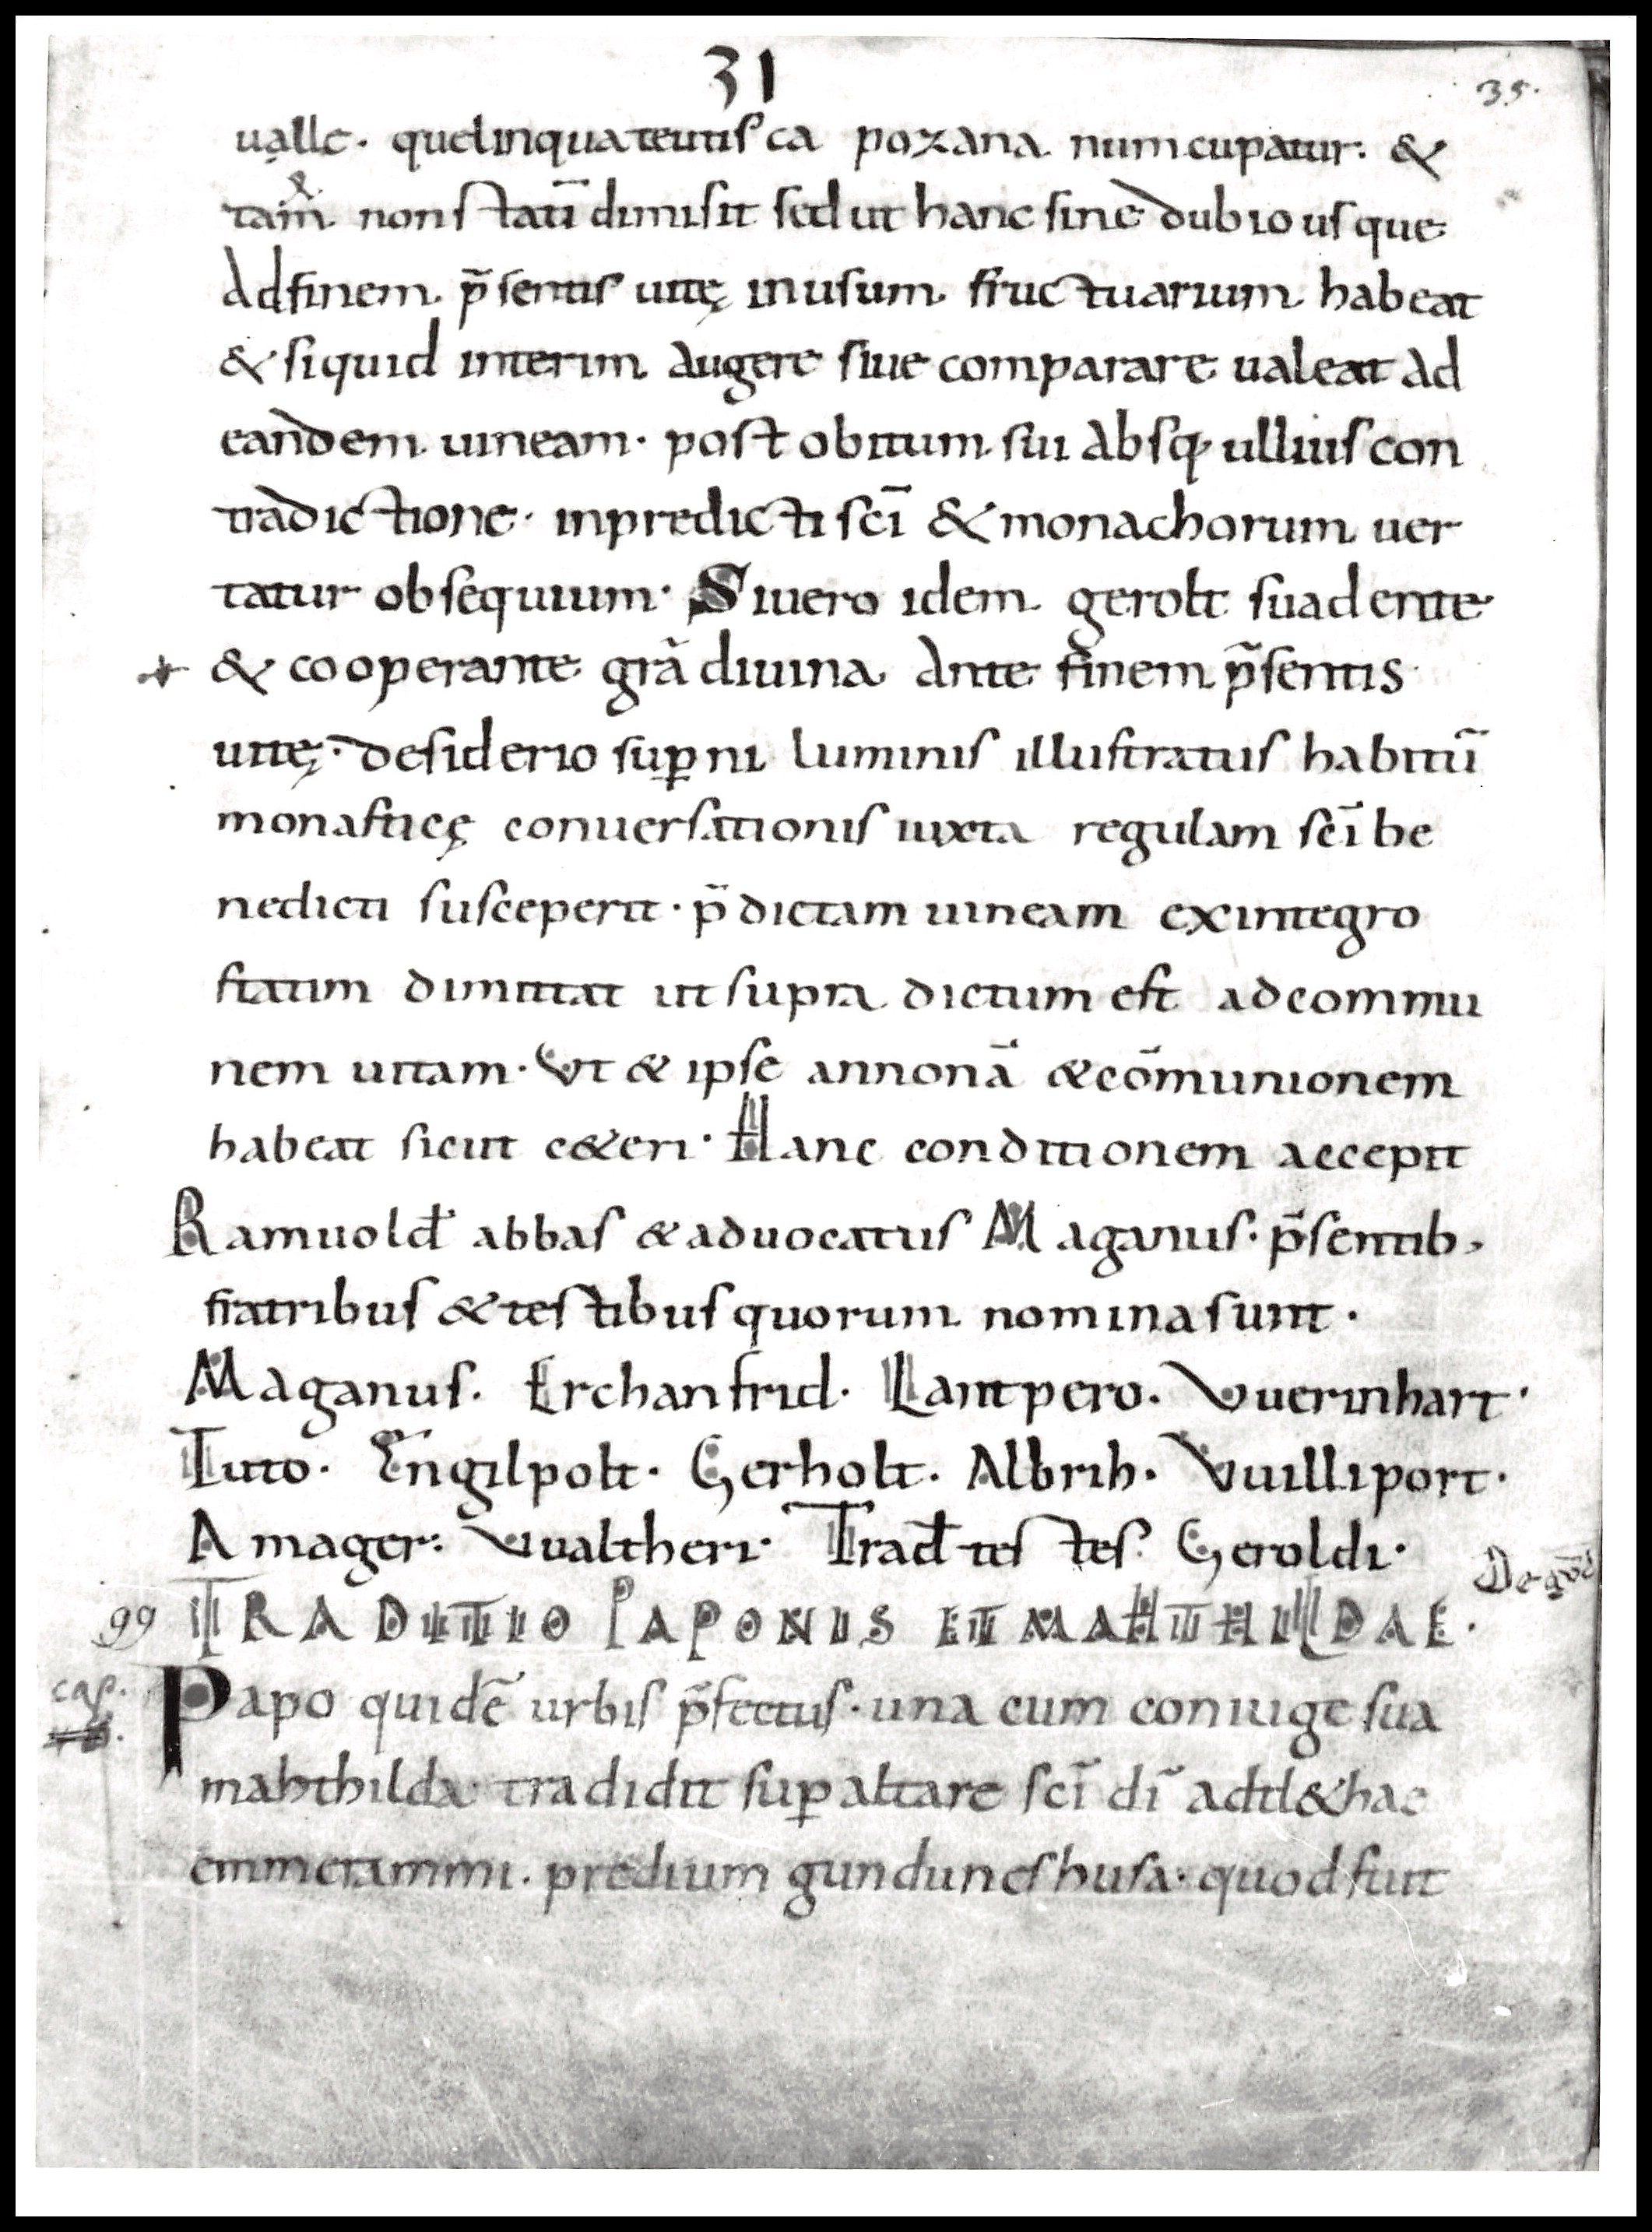 31
35.
ualle· que lingua teutisca pozana nuncupatur· &
tam̄ non statī dimisit sed ut hanc sine dubio usque
ad finem p̄sentis uitę in usum fructuarium habeat
& si quid interim augere siue comparare ualeat ad
eandem uineam· post obitum sui absq; ullius con
tradictione· in predicti scī & monachorum uer
tatur obsequium· Si uero idem gerolt suadente
& cooperante grā diuina ante finem p̄sentis
uitę· desiderio sup̱ni luminis illustratus habitū
monasticę conuersationis iuxta regulam scī be
nedicti susceperit· p̄dictam uineam ex integro
statim dimittat ut supra dictum est ad commu
nem uitam· Vt & ipse annonā & cōmunionem
habeat sicut c&eri· Hanc conditionem accepit
Ramuold̄ abbas & aduocatus Maganus· p̄sentib;
fratribus & testibus quorum nomina sunt·
Maganus· Erchanfrid· Lantpero· Vuerinhart·
Tuto· Engilpolt· Gerholt· Albrih· Vuilliport·
Amager· Vualtheri· Trad̄ tes tes· Geroldi·
99 TRADITIO PAPONIS ET MAHTHILDAE·
cap.
Papo quidē urbis p̄fectus· una cum coniuge sua
mahthilda tradidit sup̱ altare scī dī adtl&hae
emmerammi· predium gunduneshusa· quod fuit